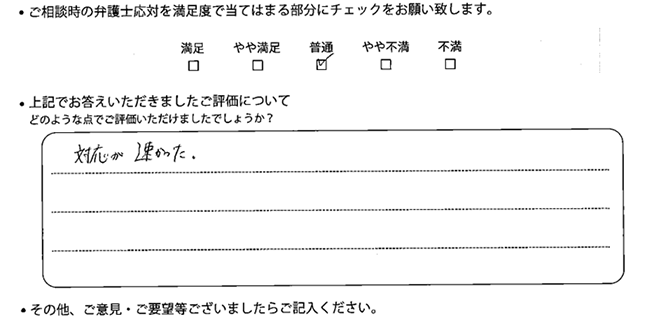 ・ご相談時の弁護士応対を満足度で当てはまる部分にチェックをお願い致します。
満足 やや満足 普通 やや不満 不満
□ □ ☑ □ □
・上記でお答えいただきましたご評価について
どのような点でご評価いただけましたでしょうか？
対応が速かった.
・その他、ご意見・ご要望等ございましたらご記入ください。